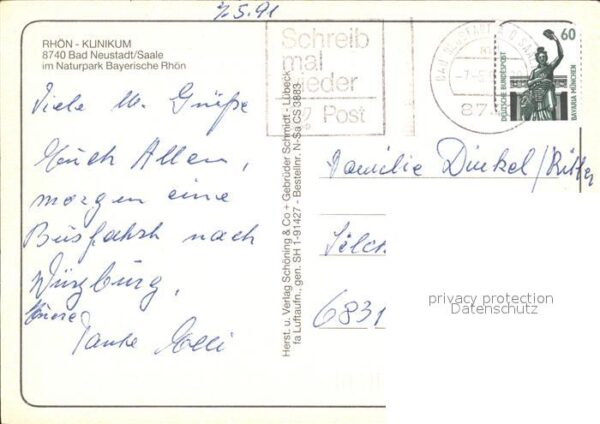 7.5.91
RHÖN - KLINIKUM
8740 Bad Neustadt/Saale
im Naturpark Bayerische Rhön
Viele lb. Grüße
Euch Allen,
morgen eine
Busfahrt nach
Würzburg,
Eure
Tante Elli
Schreib
mal
wieder
Post
BAD NEUSTADT A D SAALE
-7.-5.
87
60
DEUTSCHE BUNDESPOST
BAVARIA MÜNCHEN
Herst. u. Verlag Schöning & Co + Gebrüder Schmidt - Lübeck
fa Luftaufn., gen. SH 1-91427 - Bestellnr. N-Sa CS 3883
Familie Dinkel/Ritter
6831
privacy protection
Datenschutz